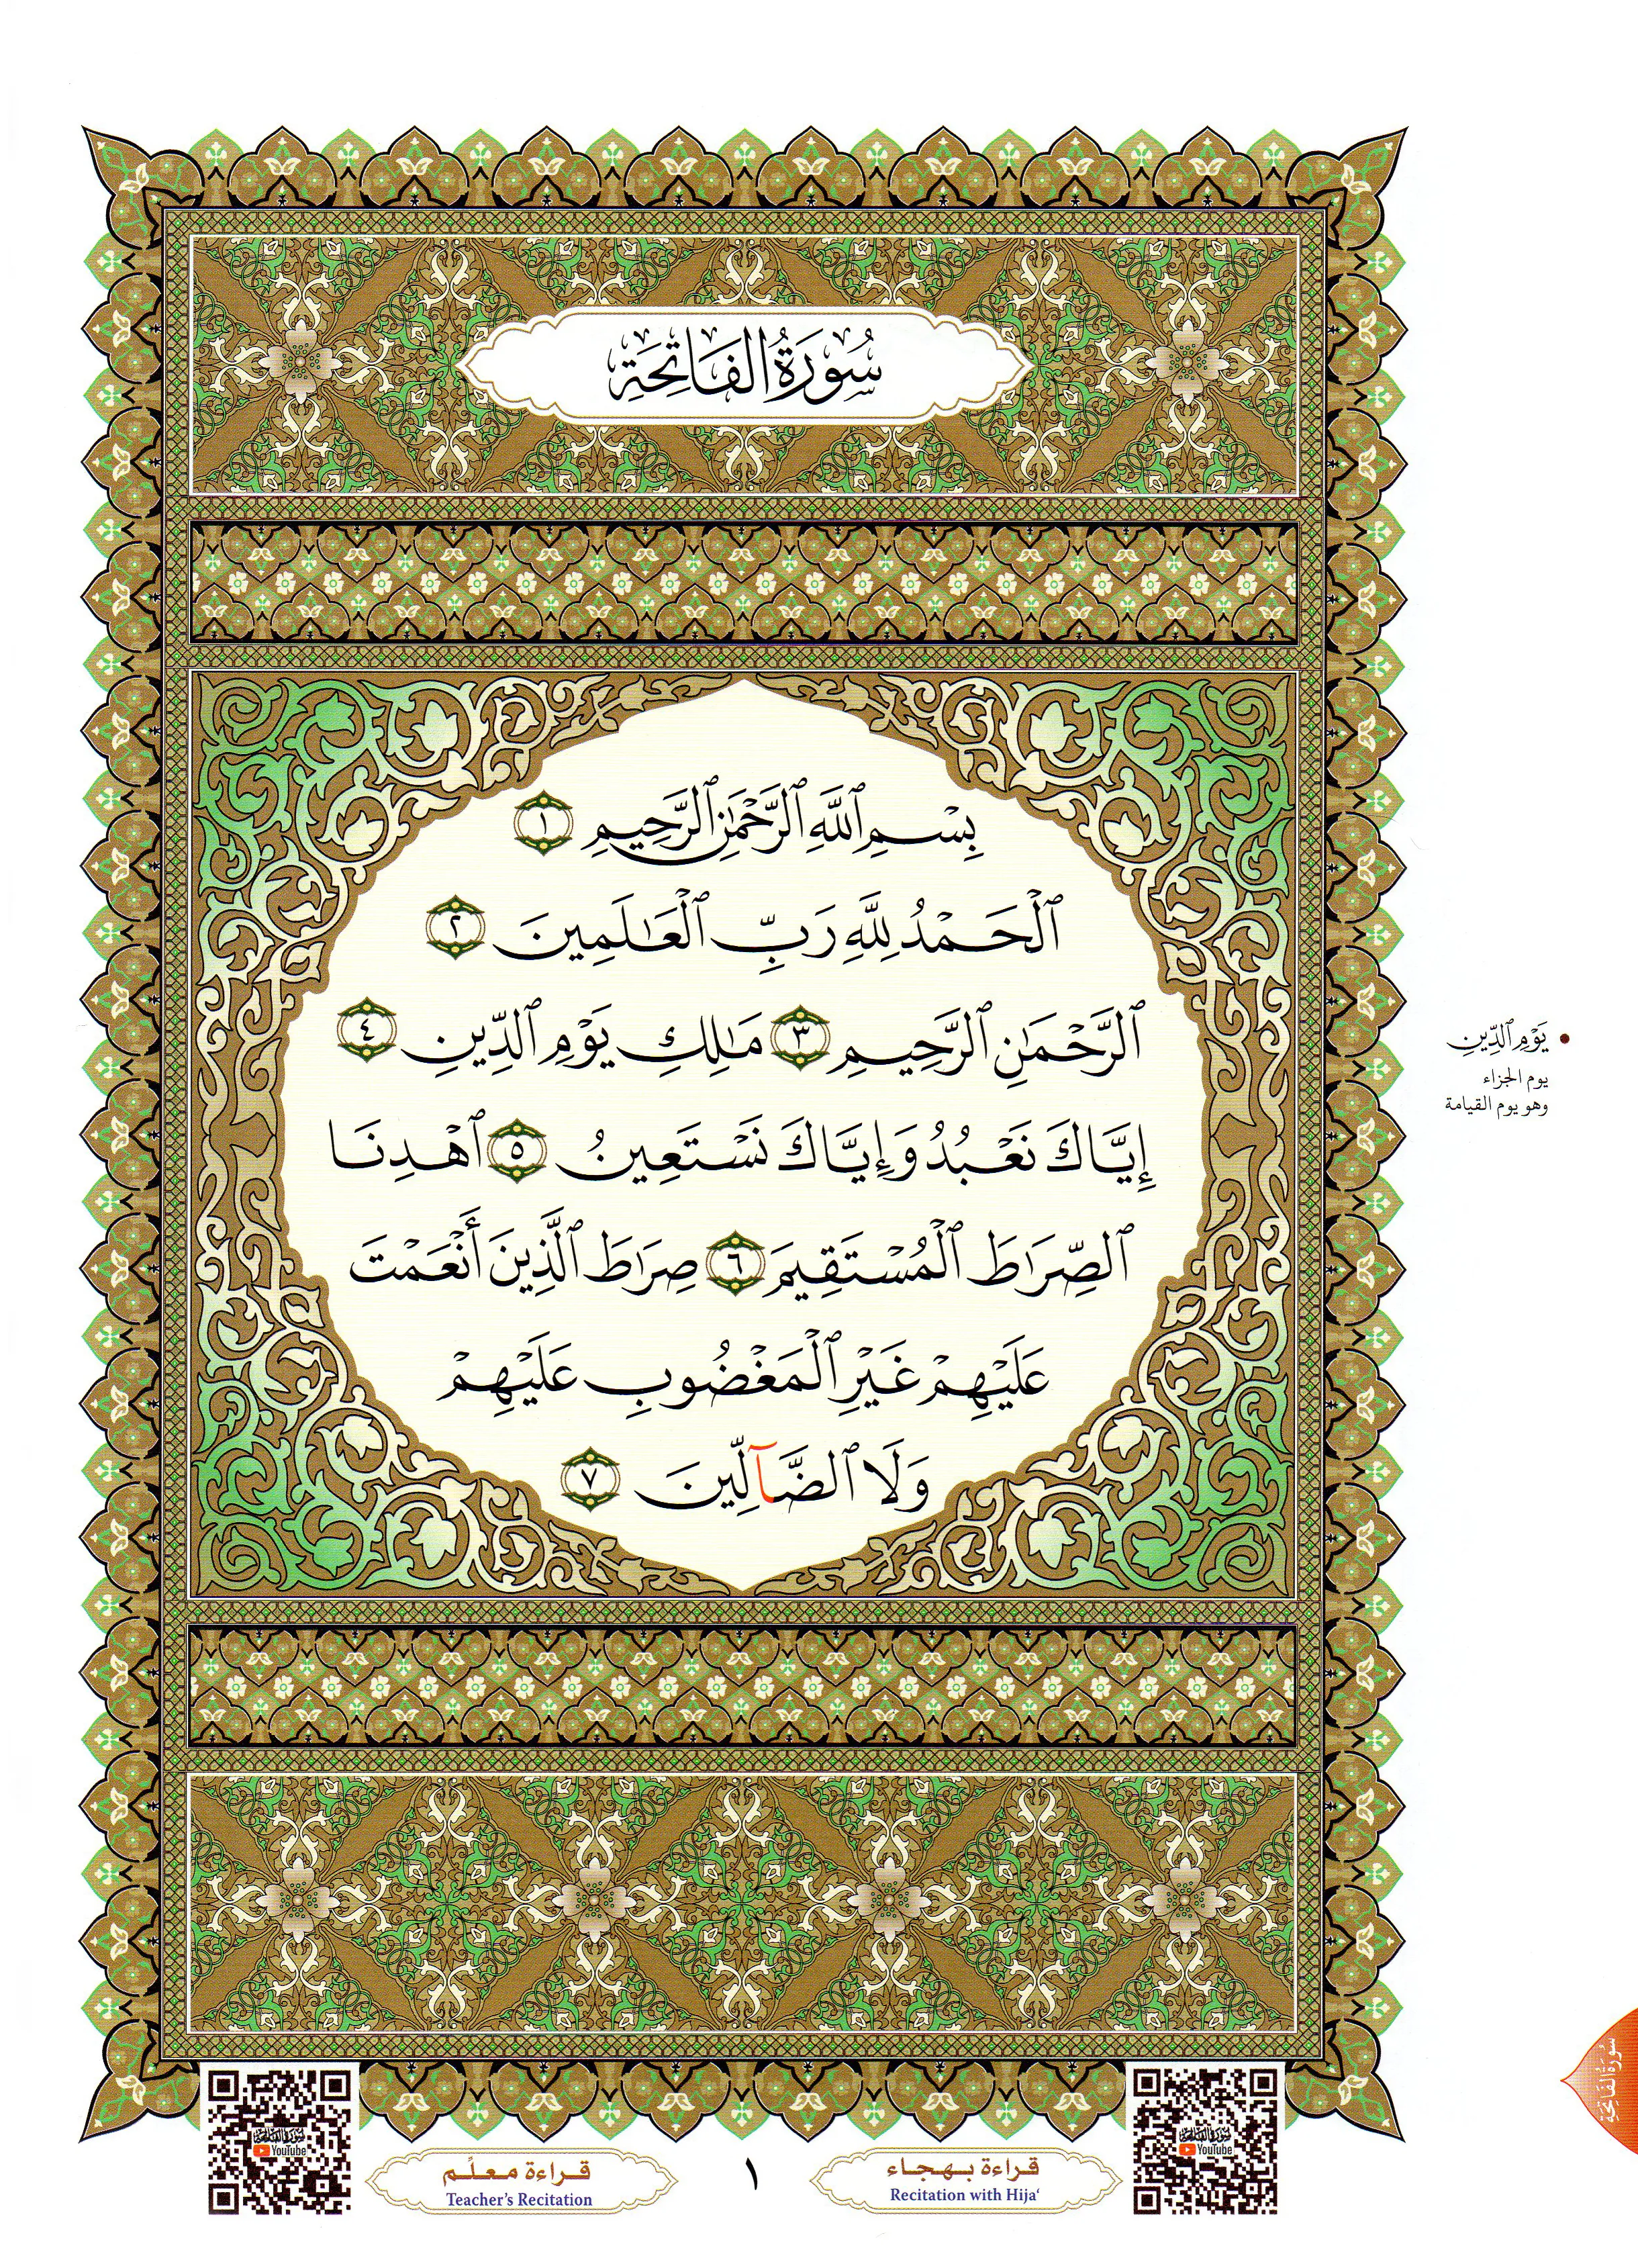 سُورَةُ الفَاتِحَةِ
بِسْمِ ٱللَّهِ ٱلرَّحْمَٰنِ ٱلرَّحِيمِ ١
ٱلْحَمْدُ لِلَّهِ رَبِّ ٱلْعَٰلَمِينَ ٢
ٱلرَّحْمَٰنِ ٱلرَّحِيمِ ٣ مَٰلِكِ يَوْمِ ٱلدِّينِ ٤
إِيَّاكَ نَعْبُدُ وَإِيَّاكَ نَسْتَعِينُ ٥ ٱهْدِنَا
ٱلصِّرَٰطَ ٱلْمُسْتَقِيمَ ٦ صِرَٰطَ ٱلَّذِينَ أَنْعَمْتَ
عَلَيْهِمْ غَيْرِ ٱلْمَغْضُوبِ عَلَيْهِمْ
وَلَا ٱلضَّآلِّينَ ٧
يَوْمِ ٱلدِّينِ
يوم الجزاء
وهو يوم القيامة
سُورَةُ الفَاتِحَةِ
سُورَةُ الفَاتِحَةِ
YouTube
قراءة بهجاء
Recitation with Hija‘
١
قراءة معلّم
Teacher’s Recitation
سُورَةُ الفَاتِحَةِ
YouTube